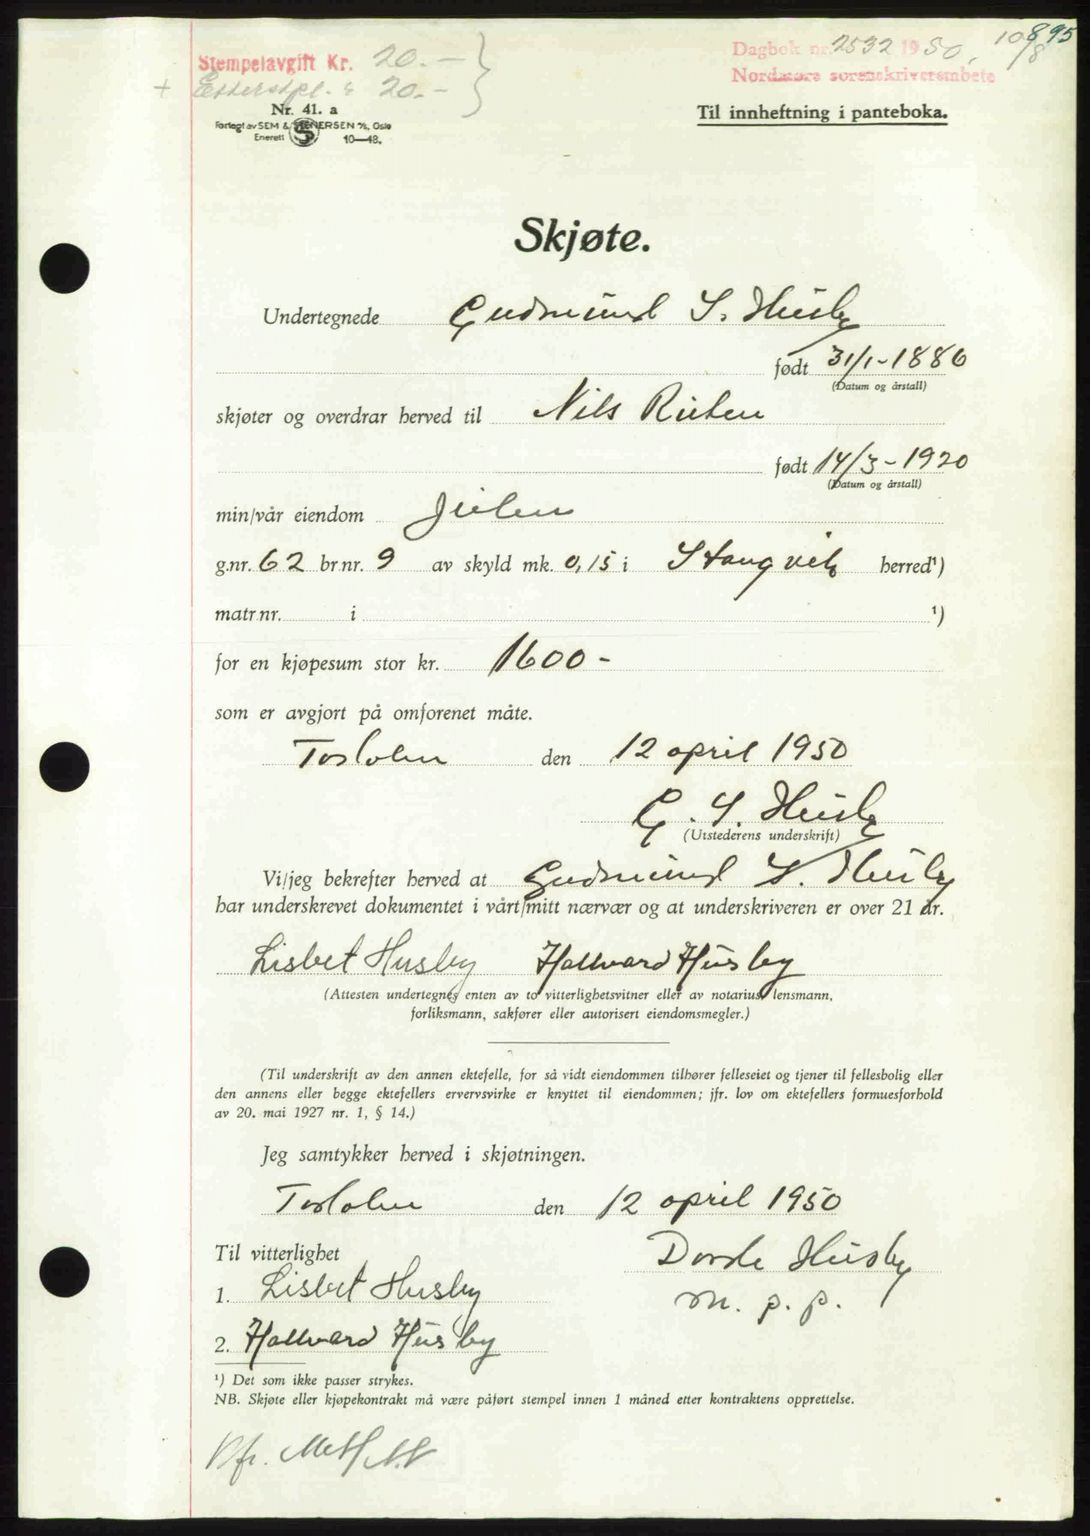 895
Stempelavgift Kr. 20.-
Dagbok nr. 2532 1950. 10/8
+ Etterstpl. " 20.-
Nordmøre sorenskriverembete
Nr. 41. a
Til innheftning i panteboka.
Forlagt av SEM & STENERSEN A/S, Oslo
Enerett 10-48.
Skjøte.
Undertegnede Gudmund S. Husby
født 31/1-1886
(Datum og årstall)
skjøter og overdrar herved til Nils
født 14/3-1920
(Datum og årstall)
min/vår eiendom
g.nr. 62 br.nr. 9 av skyld mk. 0,15 i Stangvik herred¹)
matr.nr. i ¹)
for en kjøpesum stor kr. 1600-
som er avgjort på omforenet måte.
den 12 april 1950
G. S. Husby
(Utstederens underskrift)
Vi/jeg bekrefter herved at Gudmund S. Husby
har underskrevet dokumentet i vårt/mitt nærvær og at underskriveren er over 21 år.
Lisbet Husby Hallvard Husby
(Attesten undertegnes enten av to vitterlighetsvitner eller av notarius, lensmann,
forliksmann, sakfører eller autorisert eiendomsmegler.)
(Til underskrift av den annen ektefelle, for så vidt eiendommen tilhører felleseiet og tjener til fellesbolig eller
den annens eller begge ektefellers ervervsvirke er knyttet til eiendommen; jfr. lov om ektefellers formuesforhold
av 20. mai 1927 nr. 1, § 14.)
Jeg samtykker herved i skjøtningen.
den 12 april 1950
Til vitterlighet
Dorde Husby
1. Lisbet Husby
m. p. p.
2. Hallvard Husby
¹) Det som ikke passer strykes.
NB. Skjøte eller kjøpekontrakt må være påført stempel innen 1 måned etter kontraktens opprettelse.